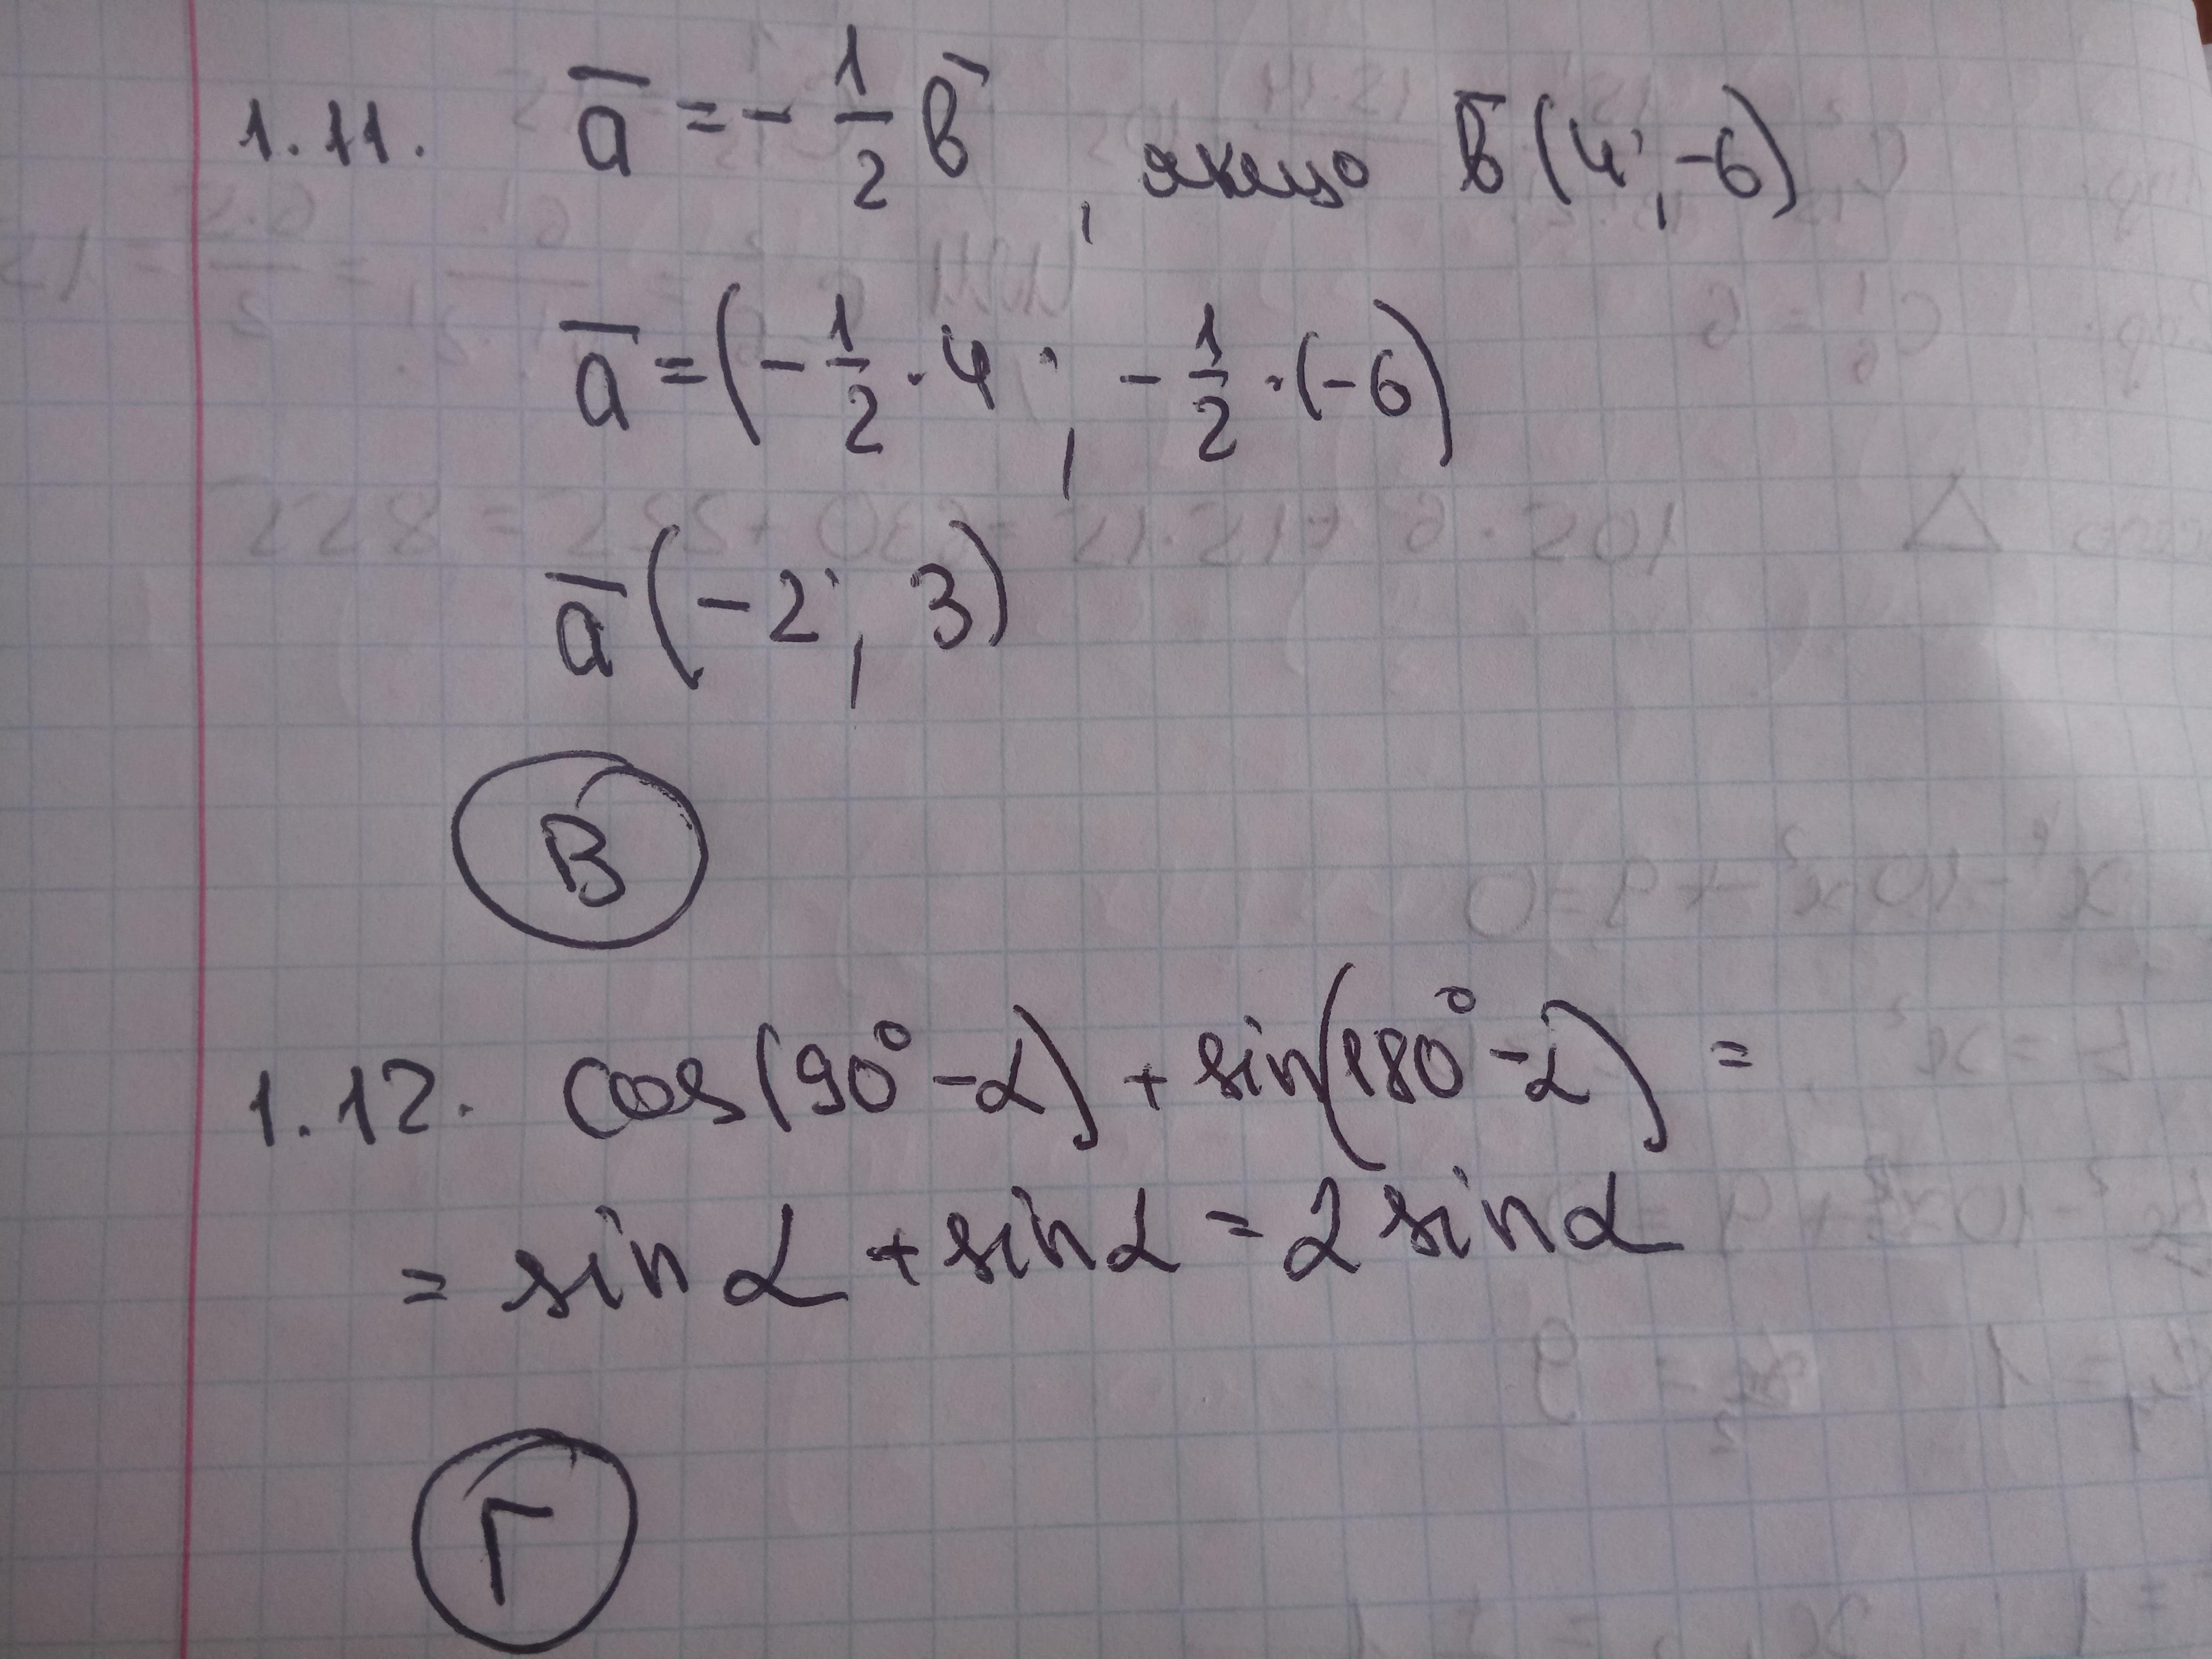 1.11. a̅ = - 1/2 b̅, якщо b̅ (4; -6)
a̅ = (- 1/2 · 4; - 1/2 · (-6)
a̅ (-2; 3)
В
1.12. cos(90° - α) + sin(180° - α) =
= sin α + sin α = 2 sin α
Г